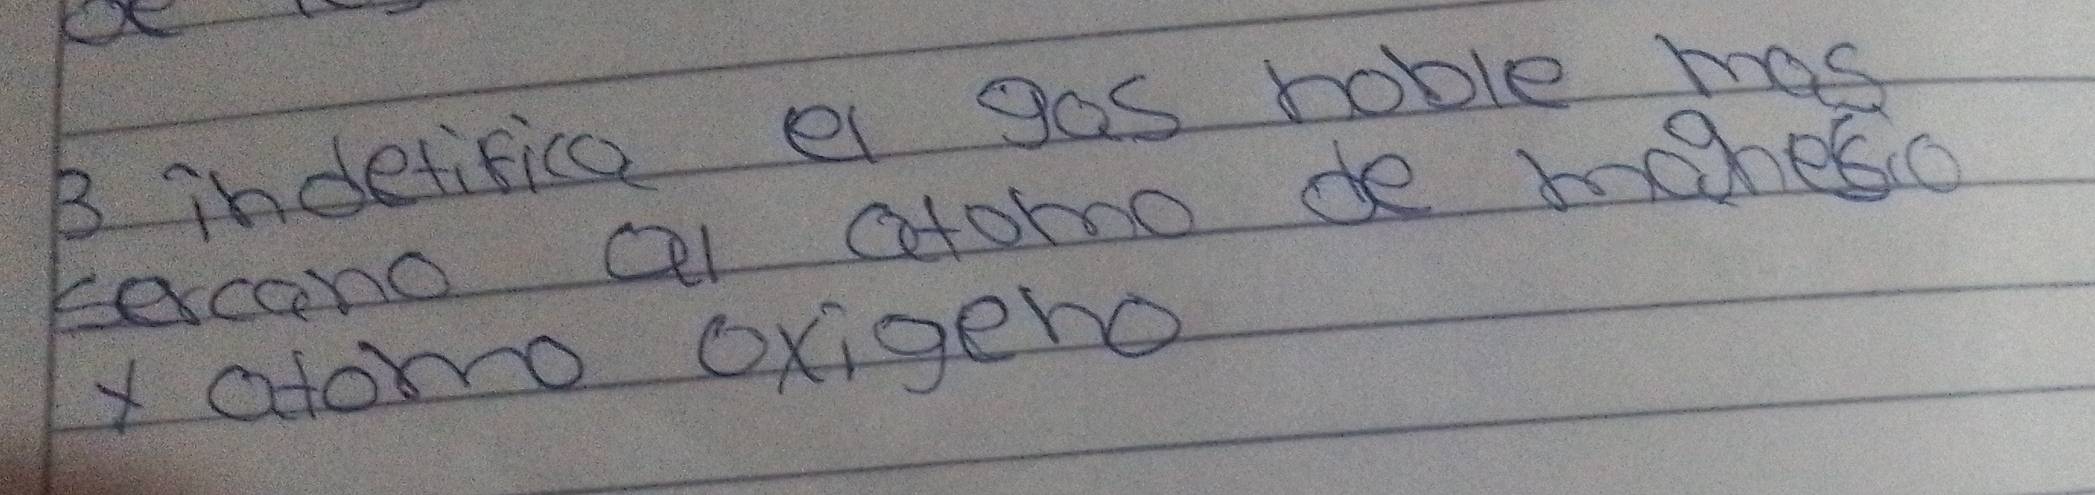 3 indetifica el gas noble mas
sercano al atomo de magnesio
y atomo oxigeno